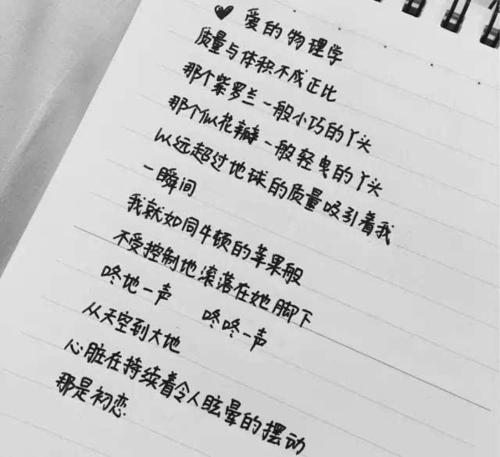 爱的物理学
质量与体积不成正比
那个紫罗兰一般小巧的丫头
那个似花瓣一般轻曳的丫头
以远超过地球的质量吸引着我
一瞬间
我就如同牛顿的苹果般
不受控制地滚落在她脚下
咚地一声 咚咚一声
从天空到大地
心脏在持续着令人眩晕的摆动
那是初恋